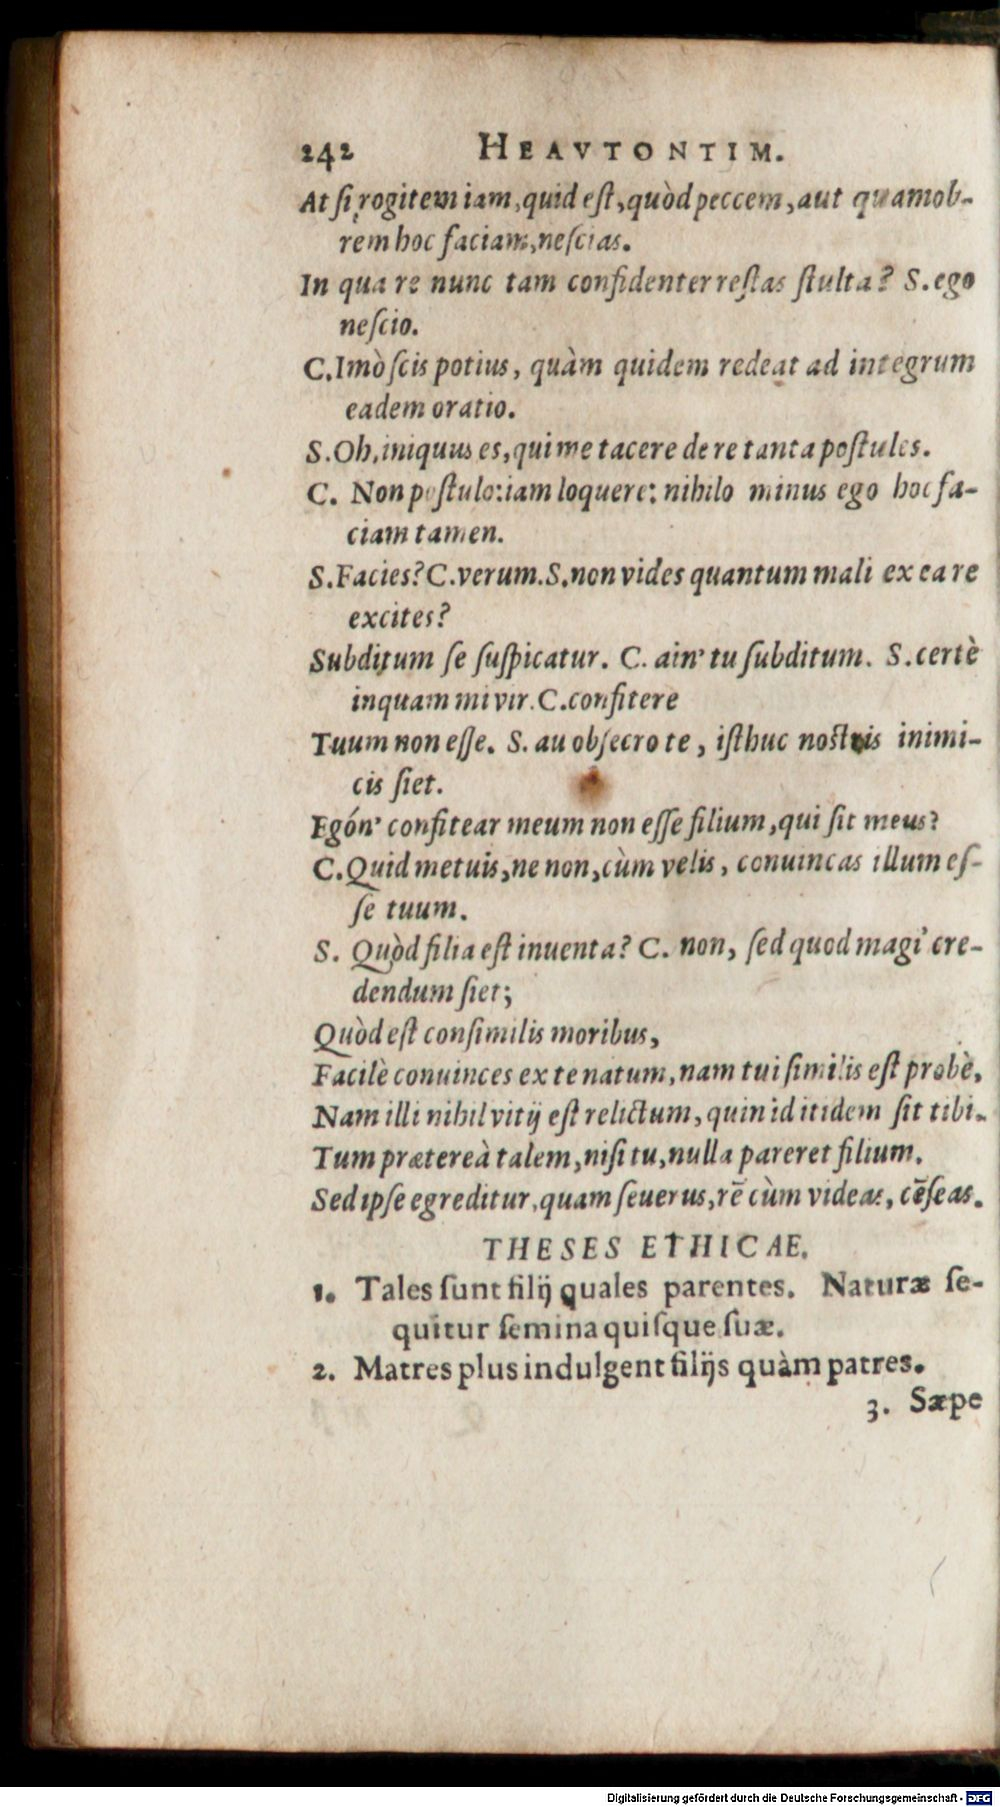 242 HEAVTONTIM.
At ſi rogitem iam, quid eſt, quòd peccem, aut quamob-
rem hoc faciam, neſcias.
In qua re nunc tam confidenter reſtas ſtulta? S. ego
neſcio.
C. Imò ſcis potius, quàm quidem redeat ad integrum
eadem oratio.
S. Oh, iniquus es, qui me tacere de re tanta poſtules.
C. Non poſtulo: iam loquere: nihilo minus ego hoc fa-
ciam tamen.
S. Facies? C. verum. S. non vides quantum mali ex ea re
excites?
Subditum ſe ſuſpicatur. C. ain' tu ſubditum. S. certè
inquam mi vir. C. confitere
Tuum non eſſe. S. au obſecro te, iſthuc noſtris inimi-
cis ſiet.
Egón' confitear meum non eſſe filium, qui ſit meus?
C. Quid metuis, ne non, cùm velis, conuincas illum eſ-
ſe tuum.
S. Quòd filia eſt inuenta? C. non, ſed quod magi' cre-
dendum ſiet;
Quòd eſt conſimilis moribus,
Facilè conuinces ex te natum, nam tui ſimilis eſt probè,
Nam illi nihil vitij eſt relictum, quin id itidem ſit tibi.
Tum prætereà talem, niſi tu, nulla pareret filium.
Sed ipſe egreditur, quam ſeuerus, rē cùm videas, cēſeas.
THESES ETHICAE.
1. Tales ſunt filij quales parentes. Naturæ ſe-
quitur ſemina quiſque ſuæ.
2. Matres plus indulgent filijs quàm patres.
3. Sæpe
Digitalisierung gefördert durch die Deutsche Forschungsgemeinschaft - DFG